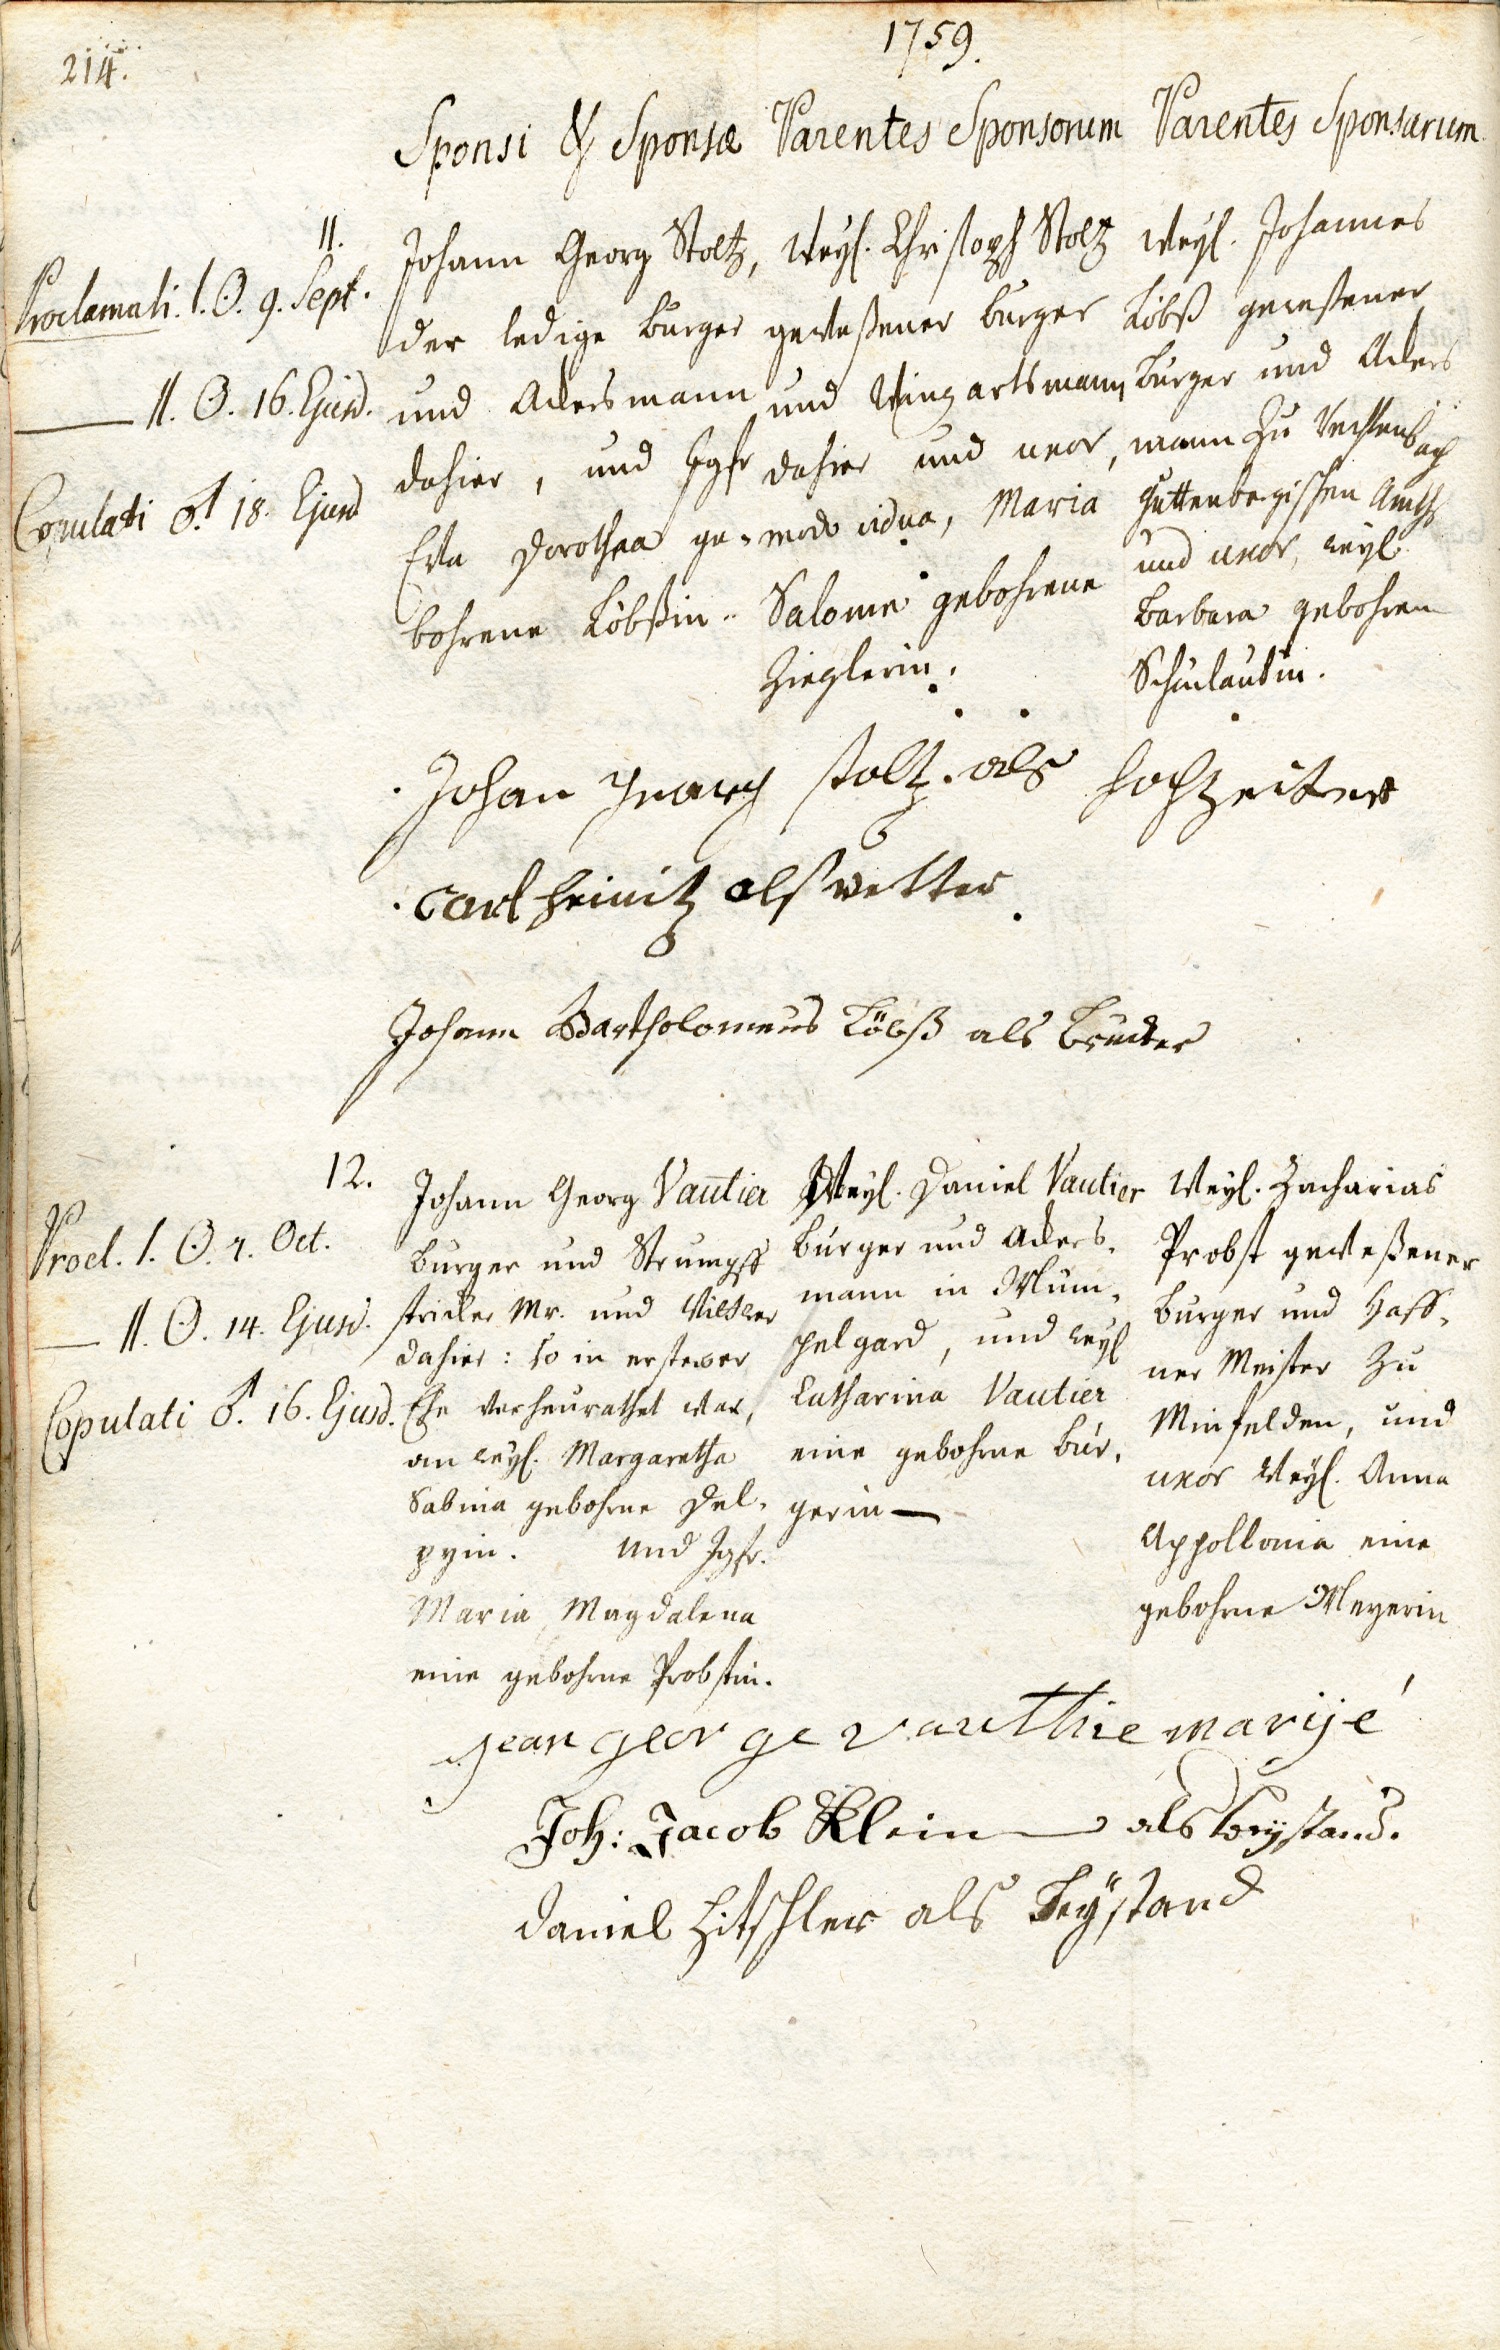 214.
1759.
Sponsi & Sponsæ
Parentes Sponsorum
Parentes Sponsarum
11.
Proclamati. I. ☉. 9. Sept.
— II. ☉. 16. Ejusd.
Copulati ♂ 18. Ejusd
Johann Georg Stoltz,
der ledige burger
und Ackersmann
dahier, und Jgfr
Eva Dorothea ge-
bohrene Löbßin.
Weyl. Christoph Stoltz
geweßener burger
und Wingartsmann
dahier und uxor,
modo vidua, Maria
Salome gebohrene
Zieglerin.
Weyl. Johannes
Löbß geweßener
Burger und Ackers
mann zu Vechtenbach
Guttenbergischen Amts
und uxor, weyl
Barbara gebohrene
.
Johan stoltz. als hochzeiter
Carl heinitz als vetter
Johann Bartholomeus Löbß als Bruder
12.
Procl. I. ☉. 7. Oct.
— II. ☉. 14. Ejusd.
Copulati ♂. 16. Ejusd.
Johann Georg Vautier
Burger und Strumpff
stricker Mr. und Wittwer
dahier: so in ersterer
Ehe verheurathet war,
an weyl. Margaretha
Sabina gebohrne Del-
pyin. Und Jgfr.
Maria Magdalena
eine gebohrne Probstin.
Weyl. Daniel Vautier
Burger und Ackers-
mann in Mum-
pelgard, und weyl
Catharina Vautier
eine gebohrne Bur-
gerin —
Weyl. Zacharias
Probst geweßener
burger und Haff-
ner Meister zu
Minfelden, und
uxor Weyl. Anna
Appollonia eine
gebohrne Meyerin
jean george vautthie marijé
Joh: Jacob Klein als beystand.
Daniel Hitschler als Beÿstand